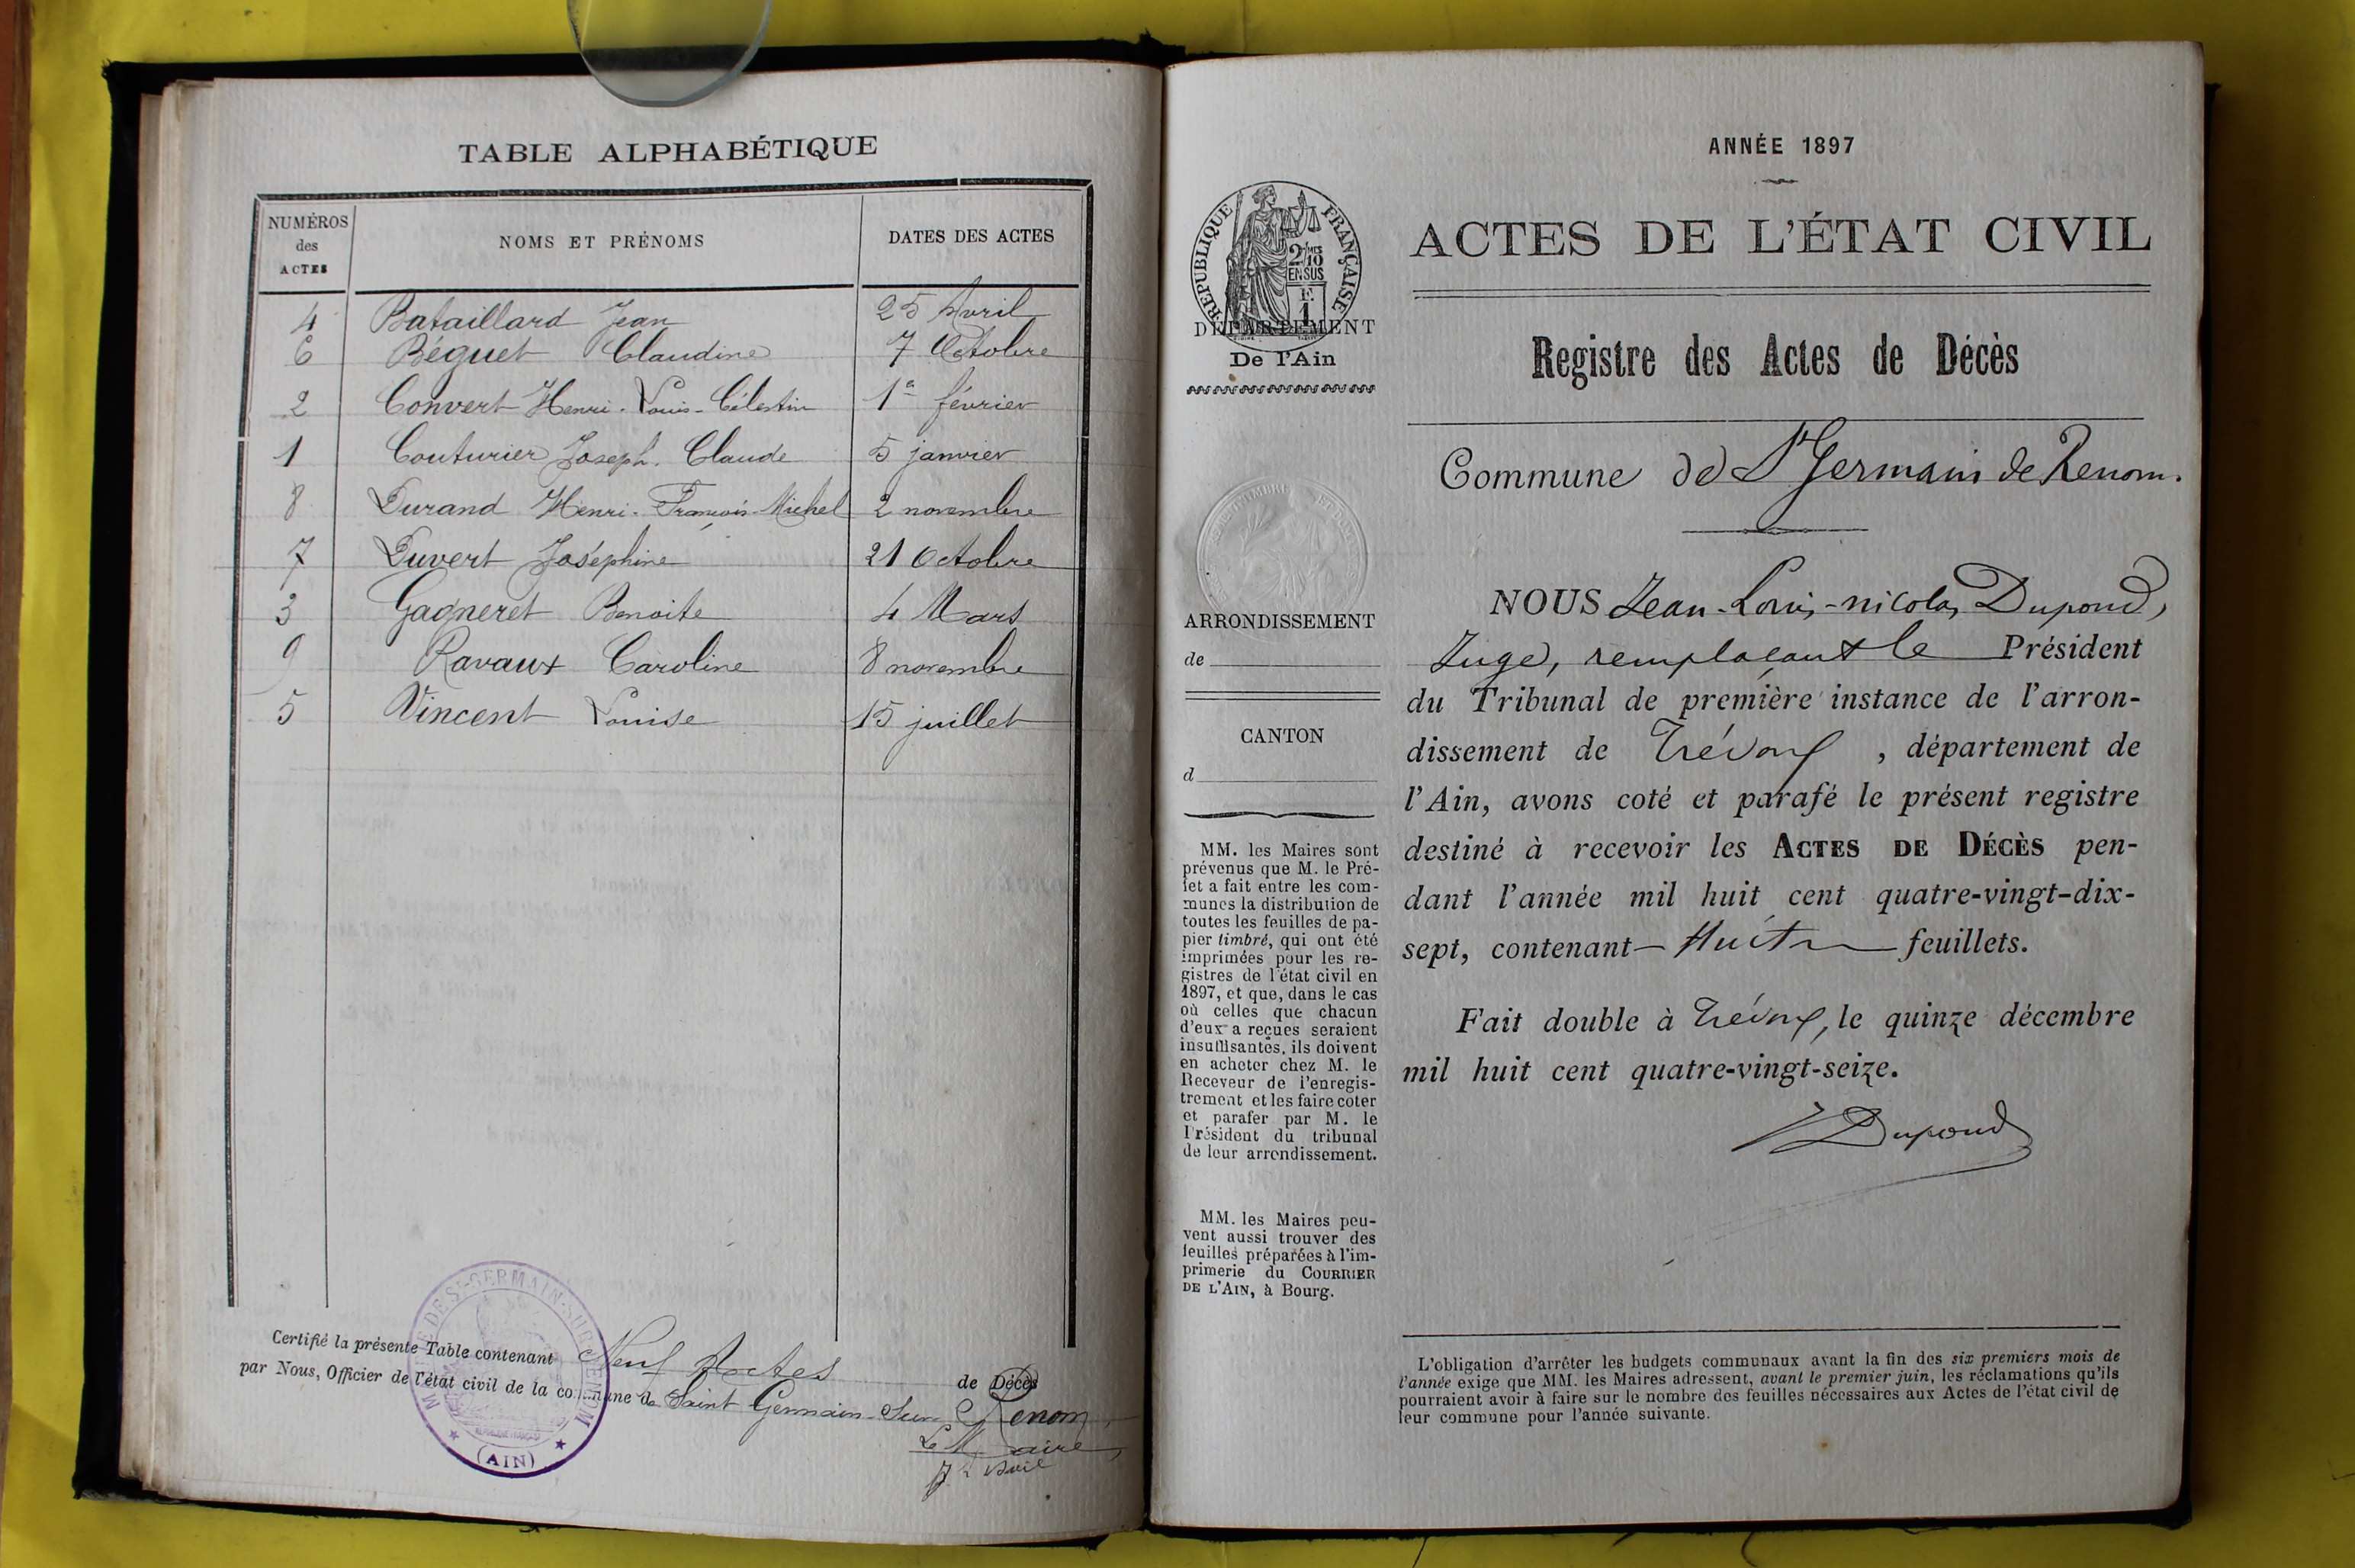 TABLE ALPHABÉTIQUE
NUMÉROS des ACTES NOMS ET PRÉNOMS DATES DES ACTES
4 Bataillard Jean 25 Avril
6 Béguet Claudine 7 Octobre
2 Convert Henri-Louis-Célestin 1er février
1 Couturier Joseph-Claude 5 janvier
8 Durand Henri-François-Michel 2 novembre
7 Duvert Joséphine 21 Octobre
3 Gagneret Benoite 4 Mars
9 Ravaux Caroline 8 novembre
5 Vincent Louise 15 juillet
Certifié la présente Table contenant Neuf Actes de Décès
par Nous, Officier de l'état civil de la commune de Saint Germain-Sur-Renom,
Le Maire,
MAIRIE DE ST-GERMAIN-SUR-RENOM
(AIN)
ANNÉE 1897
RÉPUBLIQUE FRANÇAISE
2/10
EN SUS
F.
1
DÉPARTEMENT
De l'Ain
ARRONDISSEMENT
de
CANTON
d
MM. les Maires sont
prévenus que M. le Pré-
fet a fait entre les com-
munes la distribution de
toutes les feuilles de pa-
pier timbré, qui ont été
imprimées pour les re-
gistres de l'état civil en
1897, et que, dans le cas
où celles que chacun
d'eux a reçues seraient
insuffisantes, ils doivent
en acheter chez M. le
Receveur de l'enregis-
trement et les faire coter
et parafer par M. le
Président du tribunal
de leur arrondissement.
MM. les Maires peu-
vent aussi trouver des
feuilles préparées à l'im-
primerie du COURRIER
DE L'AIN, à Bourg.
ACTES DE L'ÉTAT CIVIL
Registre des Actes de Décès
Commune de St Germain de Renom.
NOUS Jean-Louis-nicolas Dupond,
Juge, remplaçant le Président
du Tribunal de première instance de l'arron-
dissement de Trévoux, département de
l'Ain, avons coté et parafé le présent registre
destiné à recevoir les ACTES DE DÉCÈS pen-
dant l'année mil huit cent quatre-vingt-dix-
sept, contenant Huit feuillets.
Fait double à Trévoux, le quinze décembre
mil huit cent quatre-vingt-seize.
Dupond
L'obligation d'arrêter les budgets communaux avant la fin des six premiers mois de
l'année exige que MM. les Maires adressent, avant le premier juin, les réclamations qu'ils
pourraient avoir à faire sur le nombre des feuilles nécessaires aux Actes de l'état civil de
leur commune pour l'année suivante.